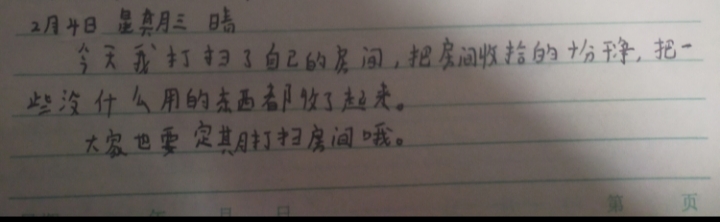 2月4日 星期三 晴
今天我打扫了自己的房间，把房间收拾的十分干净，把一
些没什么用的东西都收了起来。
大家也要定期打扫房间哦。
第 页
年 月 日